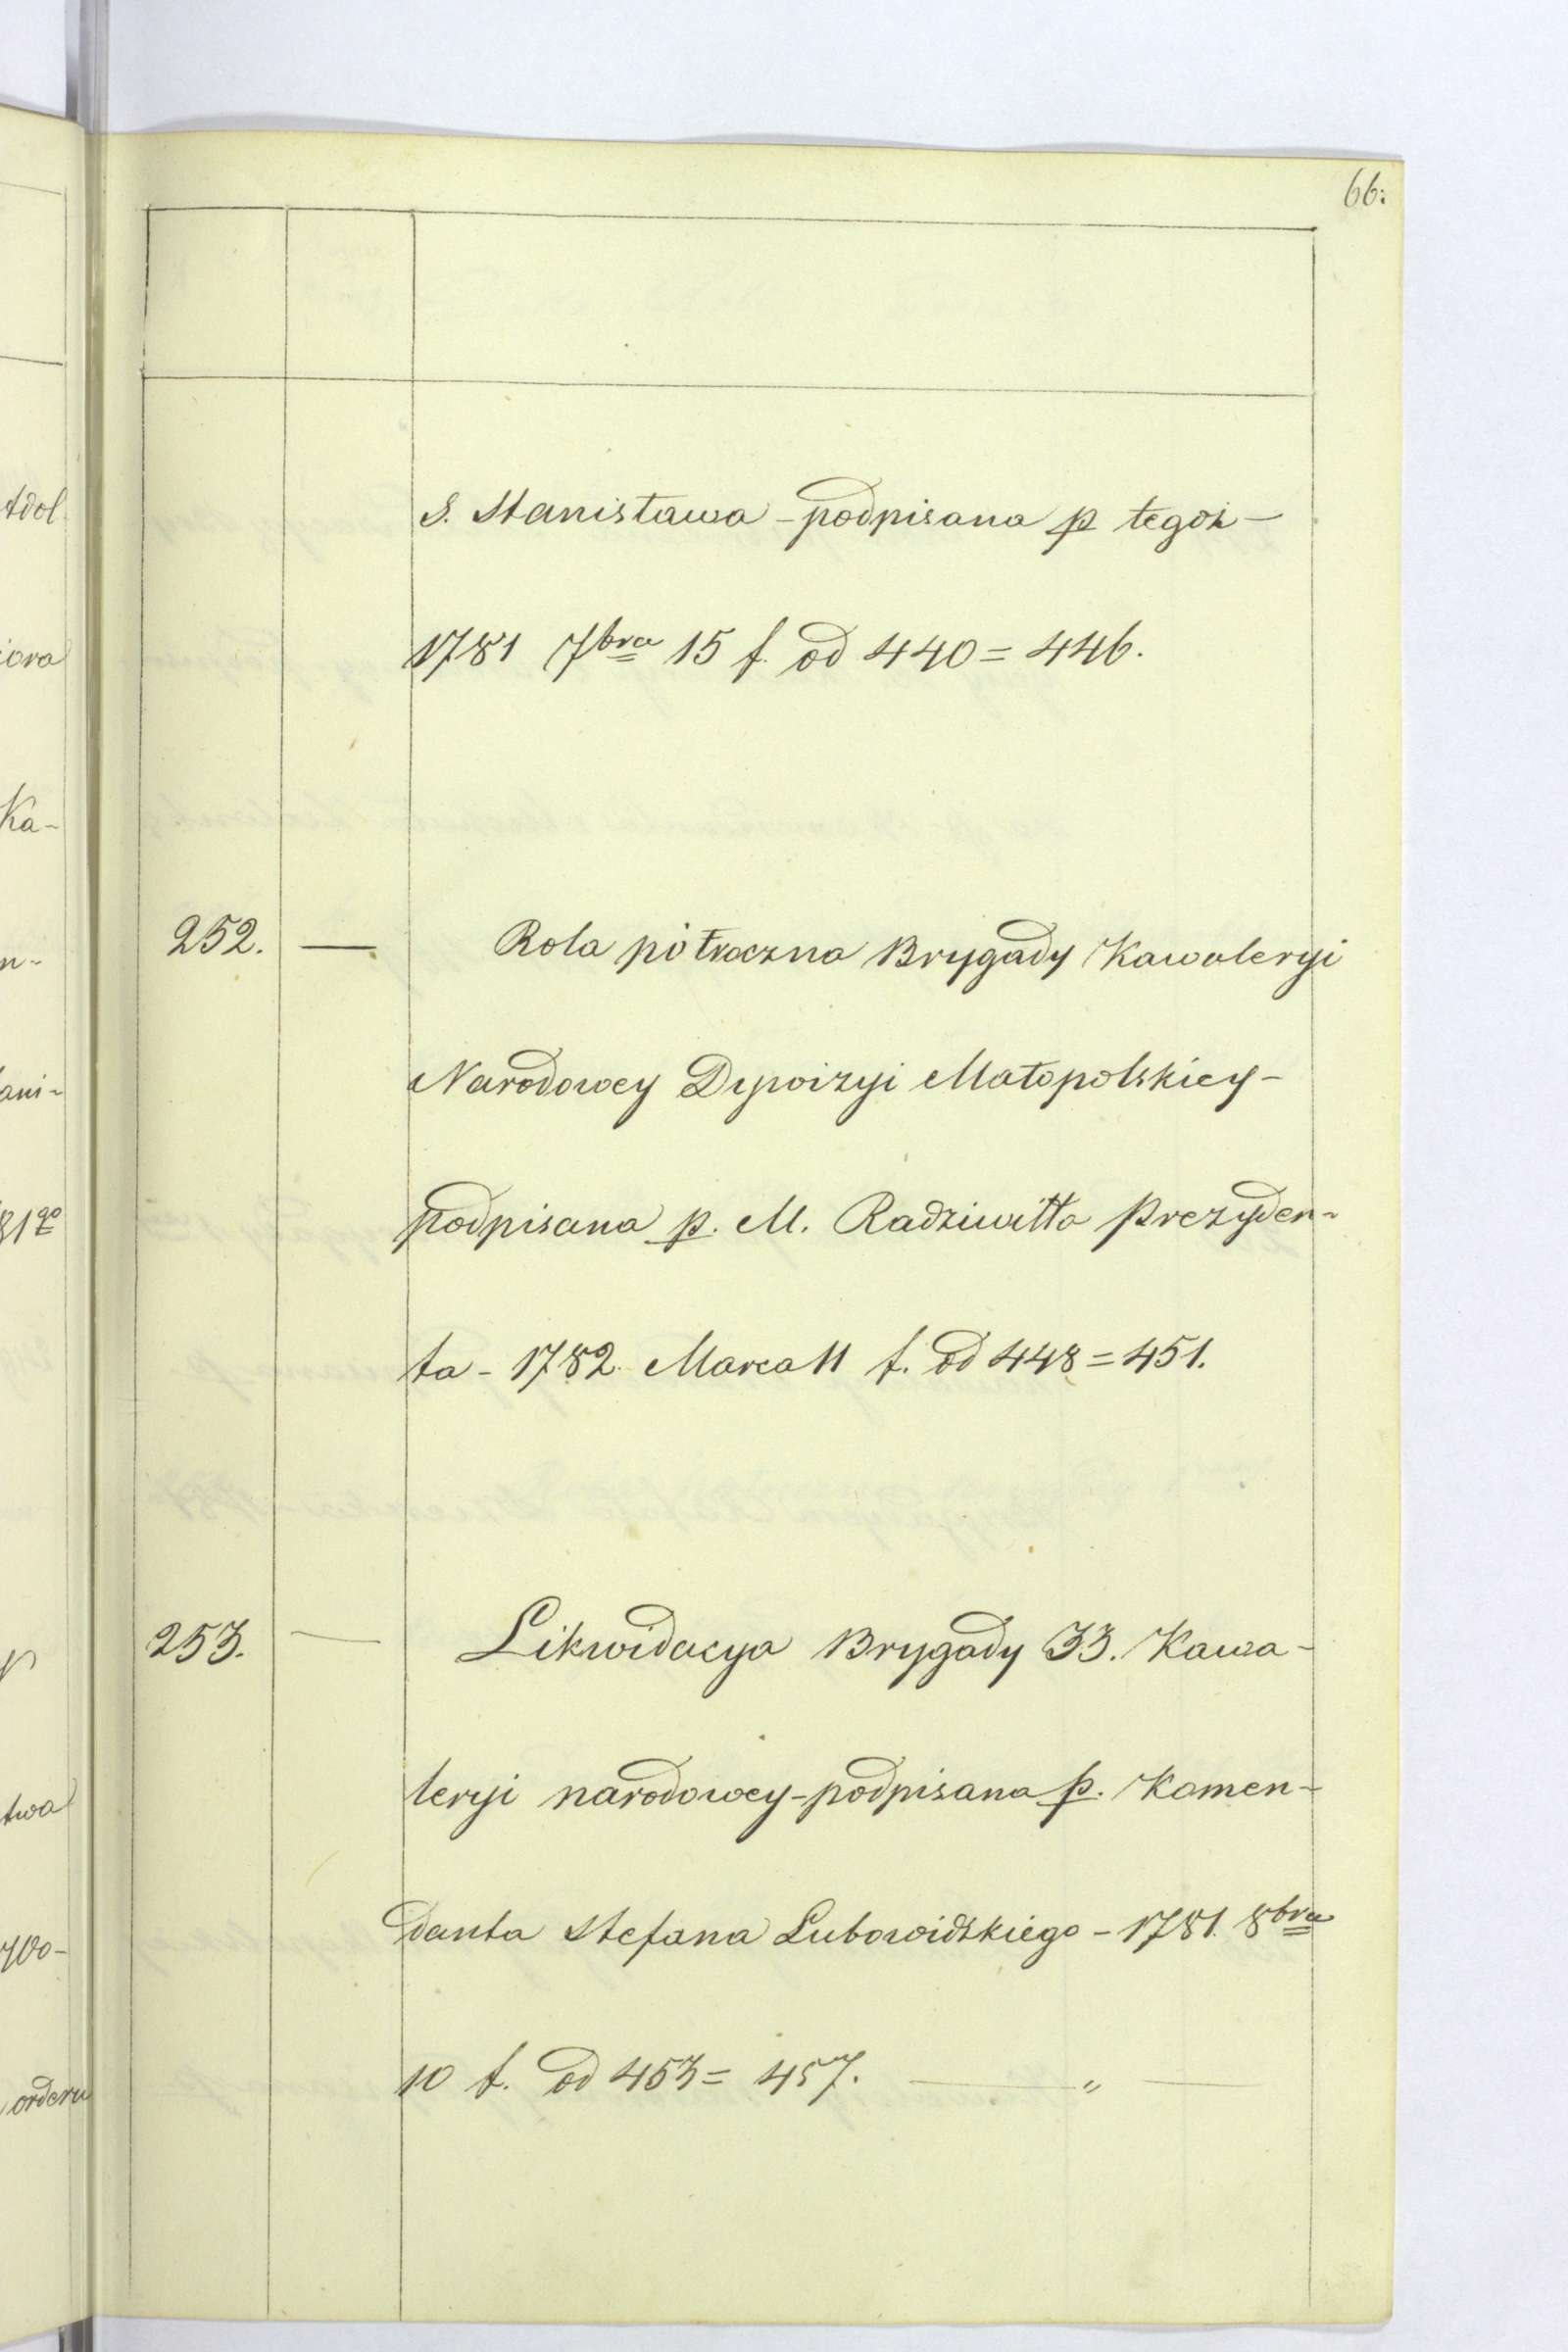 66.
S. Stanisława - podpisana p tegoż -
1781 7bra 15 f. od 440 = 446.
252. — Rola półroczna Brygady Kawaleryi
Narodowey Dywizyi Małopolskiey -
podpisana p. M. Radziwiłła Prezyden-
ta - 1782 Marca 11 f. od 448 = 451.
253. — Likwidacya Brygady 33. Kawa-
leryi narodowey - podpisana p. Komen-
danta Stefana Lubowidzkiego - 1781. 8bra
10 f. od 453 = 457. — " —
Adol
iora
Ka-
n-
ani-
81go
twa
orderu